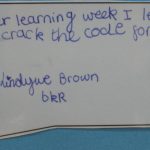 r learning week I le
crack the code for
Lindywe Brown
bkR